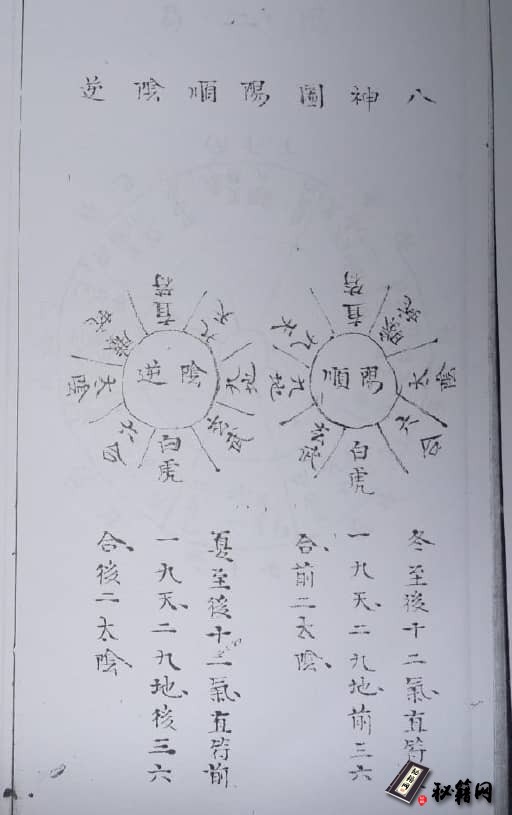 八神圖陽順陰逆
陽順
直符
螣蛇
太陰
六合
白虎
玄武
九地
九天
陰逆
直符
九天
九地
玄武
白虎
六合
太陰
螣蛇
冬至後十二氣、直符
一九天、二九地、前三六
合、前二太陰、
夏至後十二氣、直符前
一九天、二九地、後三六
合、後二太陰、
秘籍网